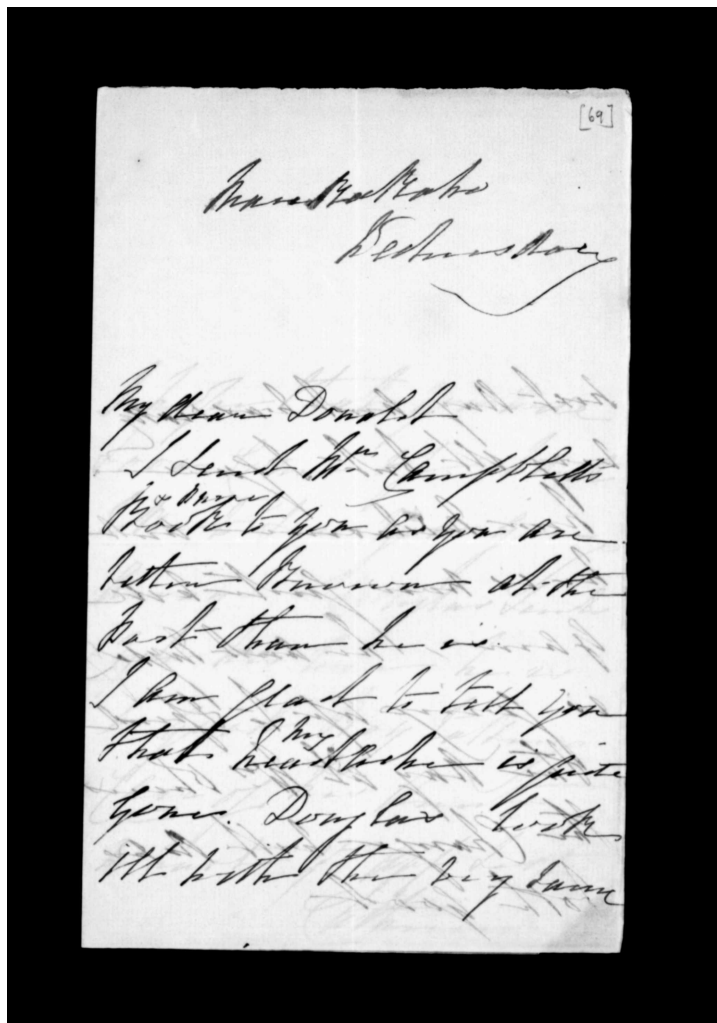 [69]
Maraekakaho
Wednesday
My dear Donald
I send Mr Campbell's
Book to you as you are
better known at the
Post than he is.
I am glad to tell you
that my headache is quite
gone. Douglas looks
ill with the very same